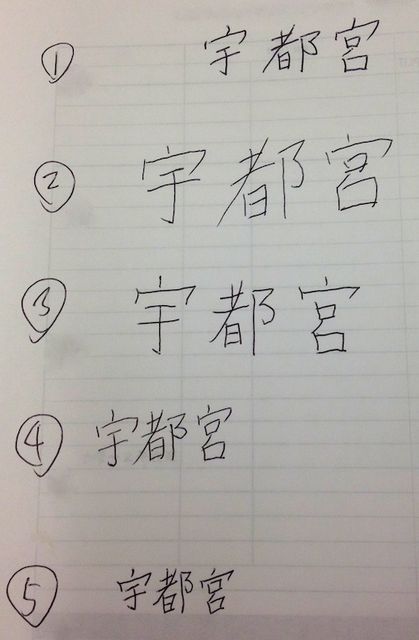 ① 宇都宮
② 宇都宮
③ 宇都宮
④ 宇都宮
⑤ 宇都宮